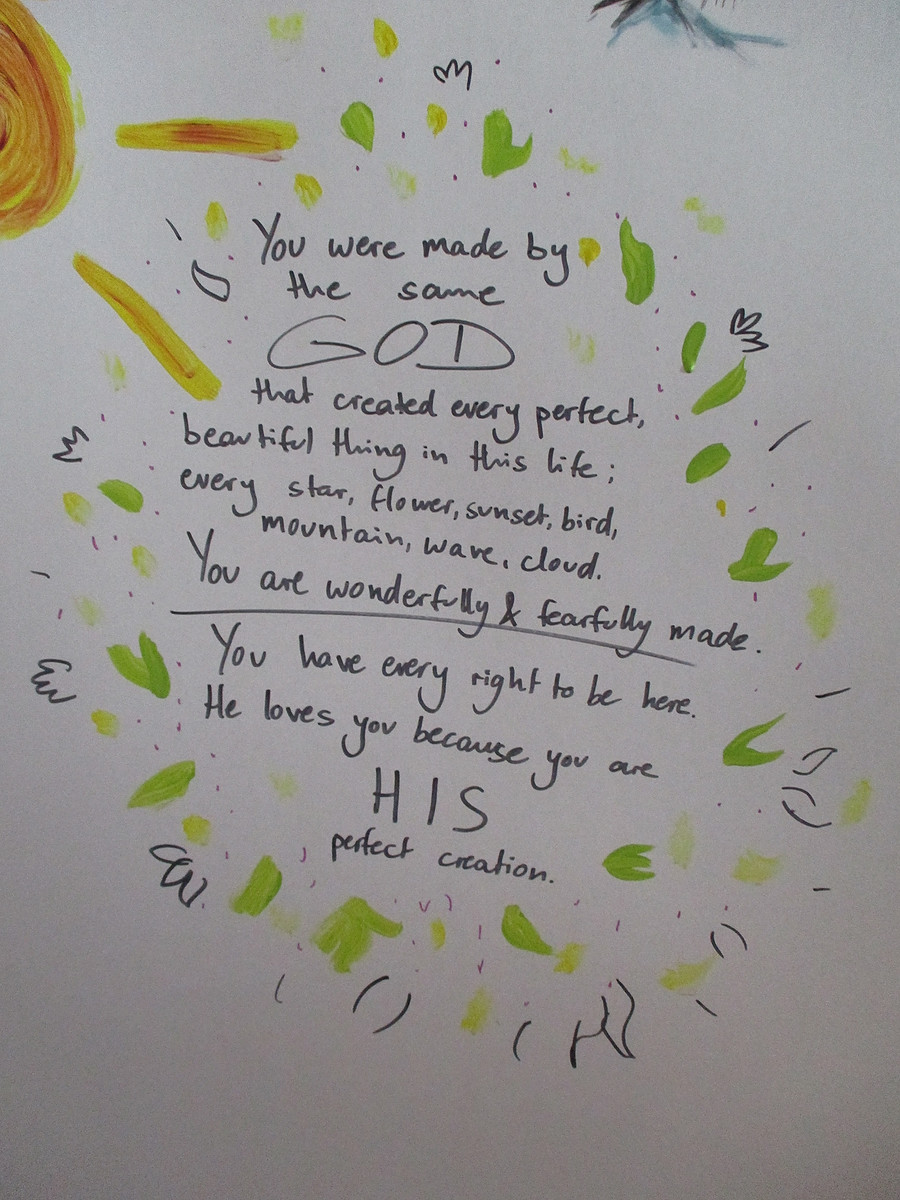 You were made by
the same
GOD
that created every perfect,
beautiful thing in this life;
every star, flower, sunset, bird,
mountain, wave, cloud.
You are wonderfully & fearfully made.
You have every right to be here.
He loves you because you are
HIS
perfect creation.